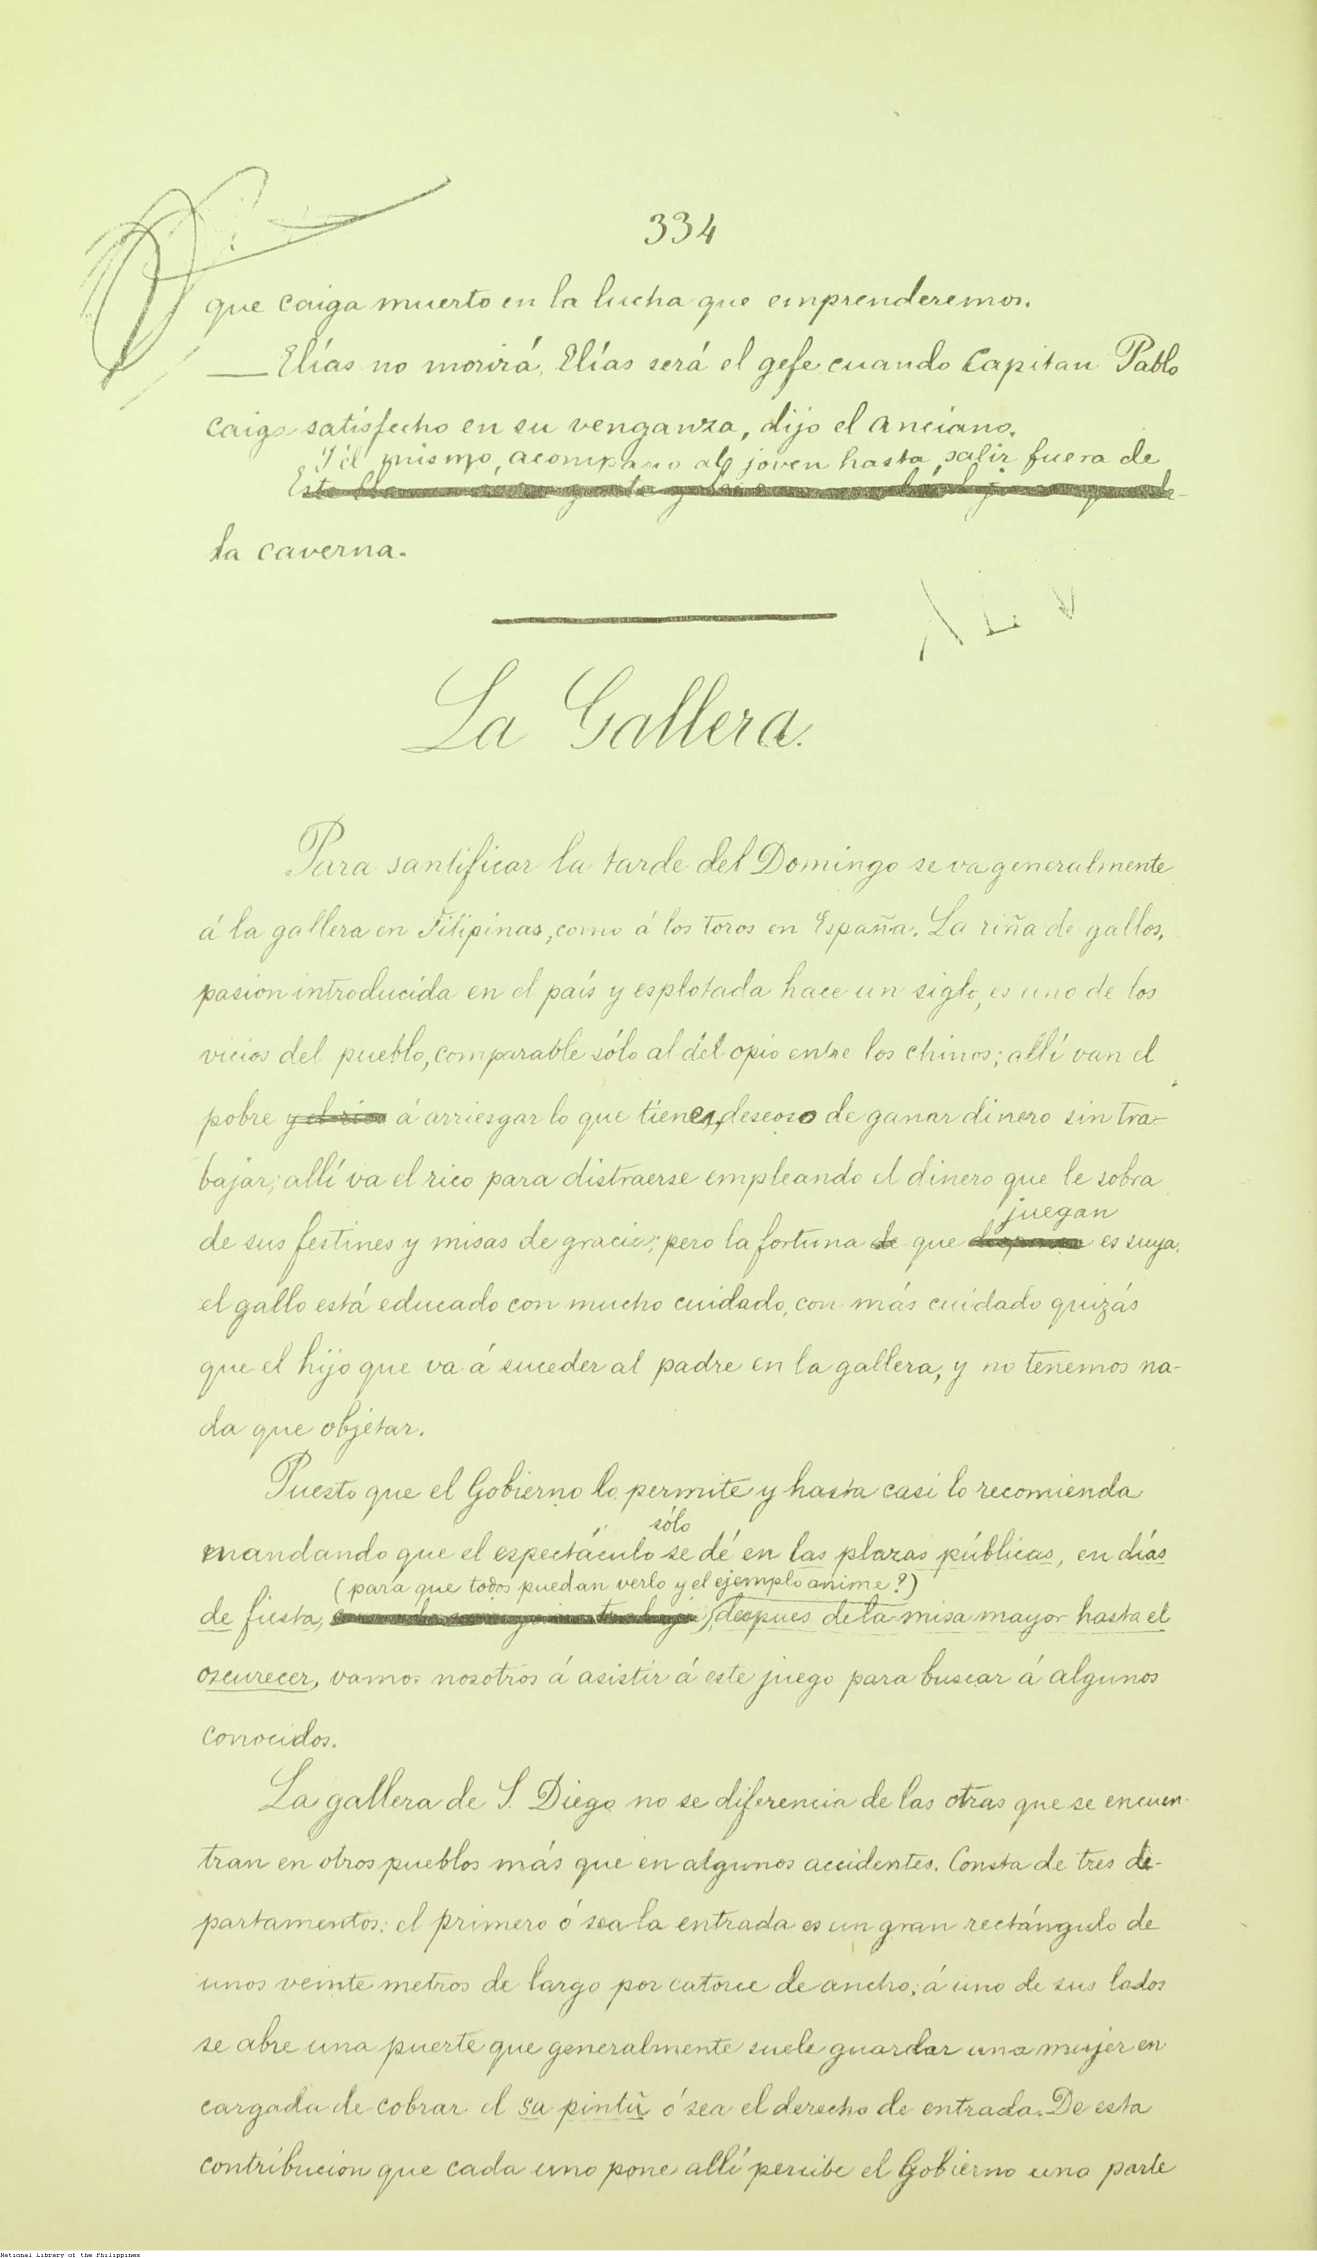 334
que caiga muerto en la lucha que emprenderemos.
—Elías no morirá, Elías será el gefe cuando Capitan Pablo
caiga satisfecho en su venganza, dijo el anciano.
Y él mismo, acompañó al joven hasta salir fuera de
la caverna.
La Gallera.
Para santificar la tarde del Domingo se va generalmente
á la gallera en Filipinas, como á los toros en España. La riña de gallos,
pasion introducida en el país y esplotada hace un siglo, es uno de los
vicios del pueblo, comparable sólo al del opio entre los chinos; allí van el
pobre y el rico á arriesgar lo que tiene, deseoso de ganar dinero sin tra-
bajar; allí va el rico para distraerse empleando el dinero que le sobra
juegan
de sus festines y misas de gracia; pero la fortuna de que es suya,
el gallo está educado con mucho cuidado, con más cuidado quizás
que el hijo que va á suceder al padre en la gallera, y no tenemos na-
da que objetar.
Puesto que el Gobierno lo permite y hasta casi lo recomienda
sólo
mandando que el espectáculo se dé en las plazas públicas, en días
(para que todos puedan verlo y el ejemplo anime?)
de fiesta, despues de la misa mayor hasta el
oscurecer, vamos nosotros á asistir á este juego para buscar á algunos
conocidos.
La gallera de S. Diego no se diferencia de las otras que se encuen-
tran en otros pueblos más que en algunos accidentes. Consta de tres de-
partamentos: el primero ó sea la entrada es un gran rectángulo de
unos veinte metros de largo por catorce de ancho; á uno de sus lados
se abre una puerta que generalmente suele guardar una mujer en
cargada de cobrar el sa pintũ ó sea el derecho de entrada. De esta
contribucion que cada uno pone allí percibe el Gobierno una parte
National Library of the Philippines